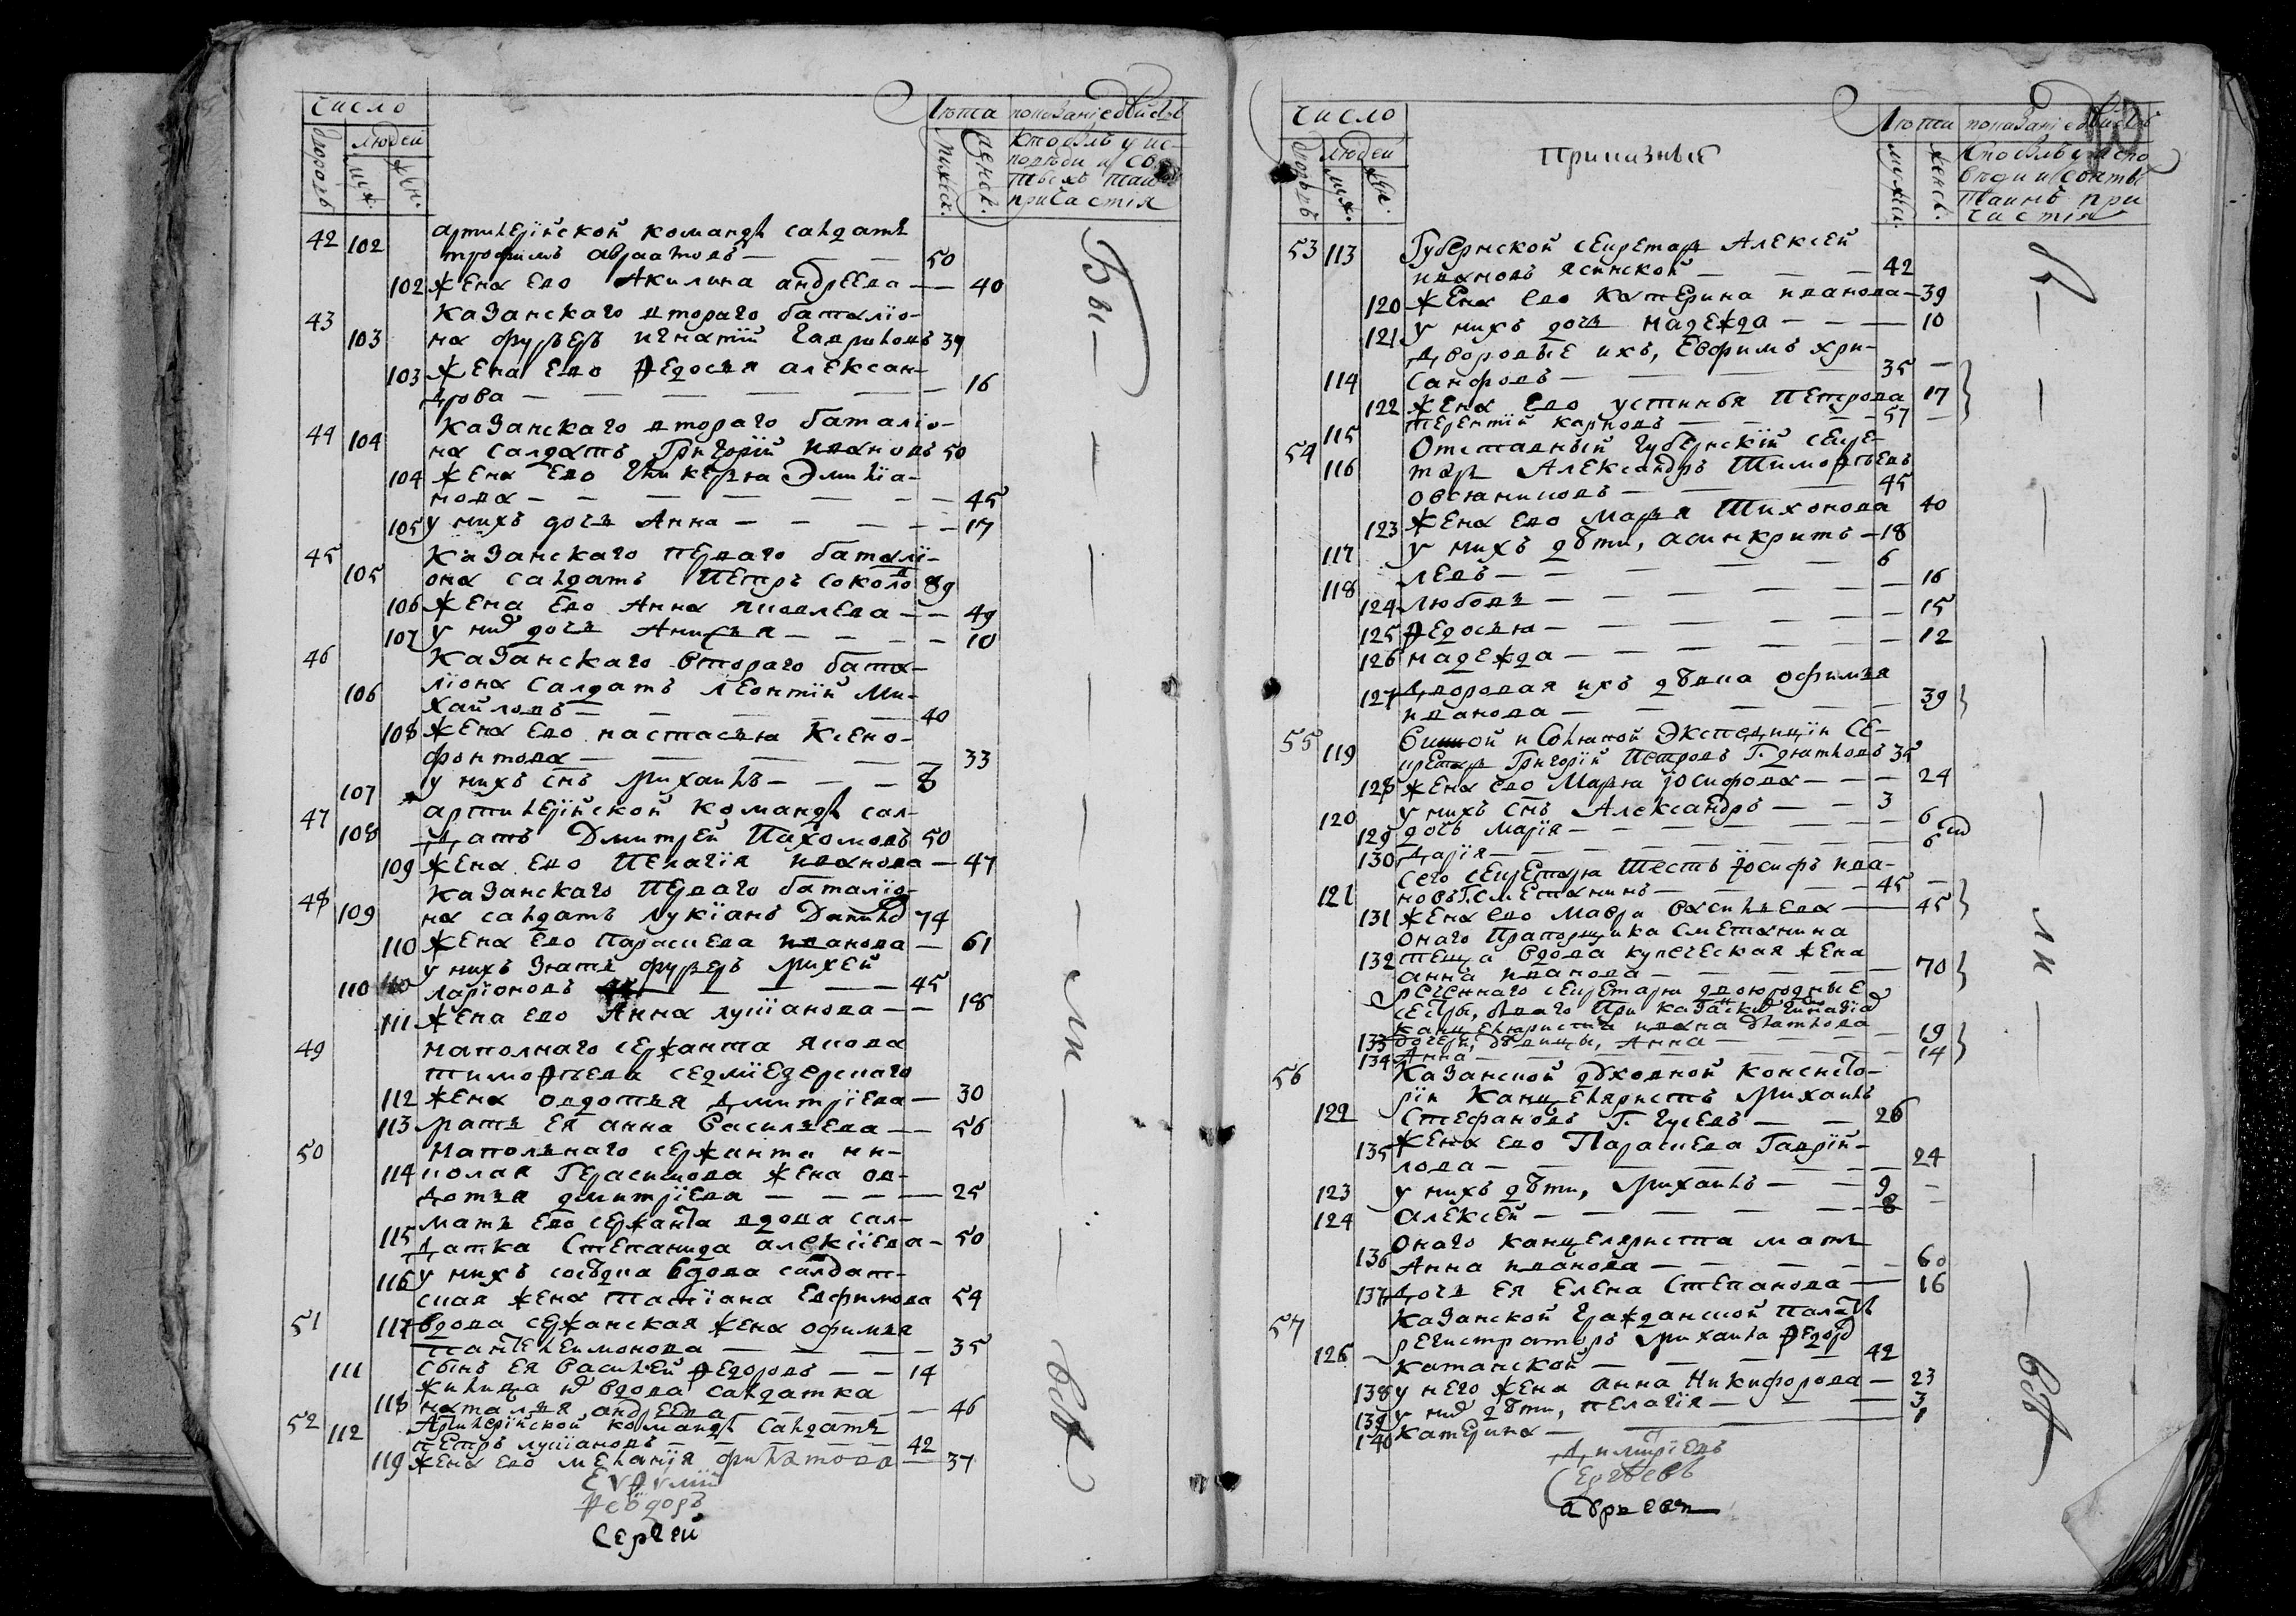 число
людей
дворовъ
муж.
жен.
лѣта
мужск.
женск.
показанiе дѣйств
кто былъ у ис-
повѣди и св
тыхъ таин
причастiя
42 102 артилерiйской команды салдатъ
трофимъ авраамовъ — — — 50
102 жена ево Акилина андреева — — 40
43 Казанскаго втораго баталiо-
103 на фурьеръ игнатiй гавриловъ 39
103 жена ево Ѳедосья алексан-
дрова — — — — — 16
44 104 Казанскаго втораго баталiо-
на салдатъ Григорiй ивановъ 50
104 жена ево гликерья Эмилiа-
нова — — — — — — 45
105 у нихъ дочь Анна — — — — 17
45 Казанскаго перваго баталi-
105 она салдатъ Петръ соколо 89
106 жена ево Анна яковлева — — 49
107 у них дочь Анисья — — — 10
46 Казанскаго втораго бата-
106 лiона салдатъ леонтiй Ми-
хайловъ — — — — 40
108 жена ево настасья Ксено-
фонтова — — — — — 33
107 у нихъ снъ михаилъ — — — 8
47 артилерiйской команды сал-
108 датъ Дмитрей Пахомовъ 50
109 жена ево Пелагiя иванова — 47
48 Казанскаго перваго баталiо-
109 на салдатъ лукiанъ Данило 74
110 жена ево параскева иванова — 61
у нихъ зять фурьеръ михей
110 ларiоновъ — — — 45
111 жена ево Анна лукiанова — — 18
49 наполнаго сержанта якова
тимоѳеева седмiезерскаго
112 жена овдотья дмитрiева — 30
113 мать ея анна васильева — — 56
50 Напольнаго сержанта ни-
114 колая Герасимова жена ов-
дотья дмитрiева — — — — 25
115 мать ево сержанта вдова сал-
датка степанида алексiева — 50
116 у нихъ сосѣдка вдова салдат-
ская жена татiана евфимова 59
51 117 вдова сержанская жена офимья
пантелеимонова — — — — 35
111 сынъ ея василей Ѳедоровъ — — 14
жилица их вдова салдатка
118 наталья андреева — — — 46
52 112 Артилерiйской команды салдатъ
петръ лукiановъ — — — — 42
119 жена ево меланiя филатова — 37
Бы — — — ли — — всѣ
Ѳеодоръ
Сергiй
число
людей
дворовъ
муж.
жен.
приказныя
лѣта
мужск.
женск.
показанiе дѣйств
кто былъ у испо
вѣди и святы
таинъ при
частiя
53 113 Губернской секретарь Алексей
ивановъ ясинской — — — 42
120 жена ево катерина иванова — 39
121 у нихъ дочь надежда — — — 10
дворовые ихъ, евфимъ хри-
114 санфовъ — — — 35 —
122 жена ево устинья петрова 17
115 терентiй карповъ — — — 57 —
54 Отставный губернскiй секре-
116 тарь Александръ Тимофѣевъ
овсяниковъ — — — 45
123 жена ево марья Тихонова 40
117 у нихъ дѣти, асинкритъ — 18
118 левъ — — — — — 6
124 любовь — — — — — — 16
125 Ѳедосья — — — — — 15
126 надежда — — — — — — 12
127 дворовая ихъ дѣвка офимья
иванова — — — — — 39
55 119 винной и соляной Экспедицiи се-
кретарь Григорiй Петровъ Г. 35
128 жена ево Марья iосифова — — — 24
120 у нихъ снъ Александръ — — 3
129 дочь марiя — — — — — — 6
130 дарiя — — — — — — 6
сего секретаря тесть iосифъ ива-
121 новъ Г. сметанинъ — — — 45 —
131 жена ево мавра васильева — 45
онаго прапорщика сметанина
132 теща вдова купеческая жена
анна иванова — — — — — 70
реченнаго секретаря двоюродные
133 дочери, дѣвицы, Анна — — — 19
134 Анна — — — — — 14
56 Казанской духовной консисто-
рiи канцеляристъ михаилъ
122 Стефановъ Г. гусевъ — — 26
135 жена ево Параскева Гаврiй-
лова — — — — — — 24
123 у нихъ дѣти, михаилъ — — 9 —
124 алексей — — — — — 8 —
онаго канцеляриста мать
136 Анна иванова — — — — — 60
137 дочь ея елена Степанова — 16
57 казанской гражданской палаты
регистраторъ михаила Ѳедор
126 катанской — — — — 42
138 у него жена анна Никифорова — 23
139 у них дѣти, пелагiя — — — 3
140 катерина — — — 1
Бы — — — ли — — всѣ
Димитрiевъ
Сергѣевъ